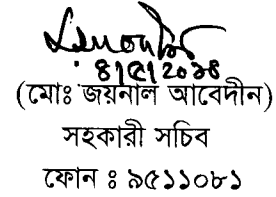 ৪/৫/২০১৪
(মোঃ জয়নাল আবেদীন)
সহকারী সচিব
ফোন ঃ ৯৫১১০৮১